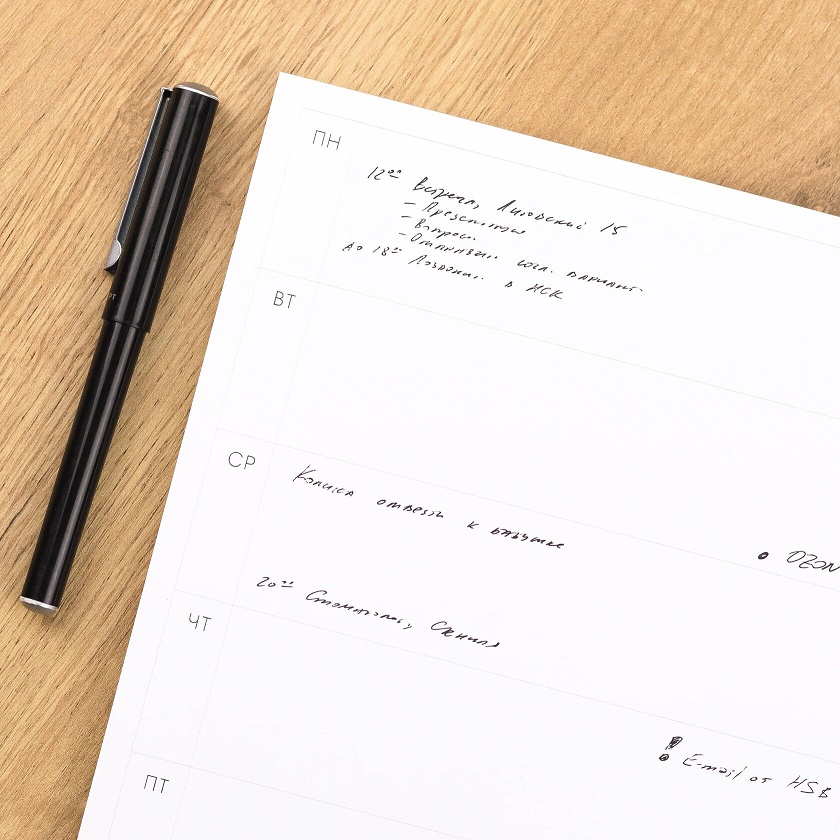 ПН
12⁰⁰ Встреча, Лиговский 15
– Презентация
– Вопросы
– согл. вариант
до 18⁰⁰ Позвонить в МСК
ВТ
СР
отвезти к бабушке
• OZON
20⁰⁰ Стоматолог,
ЧТ
! E-mail от HSB
ПТ